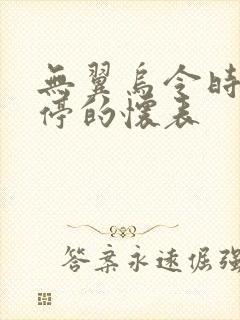 無翼鳥令時
停的懷表
答案永遠倔強